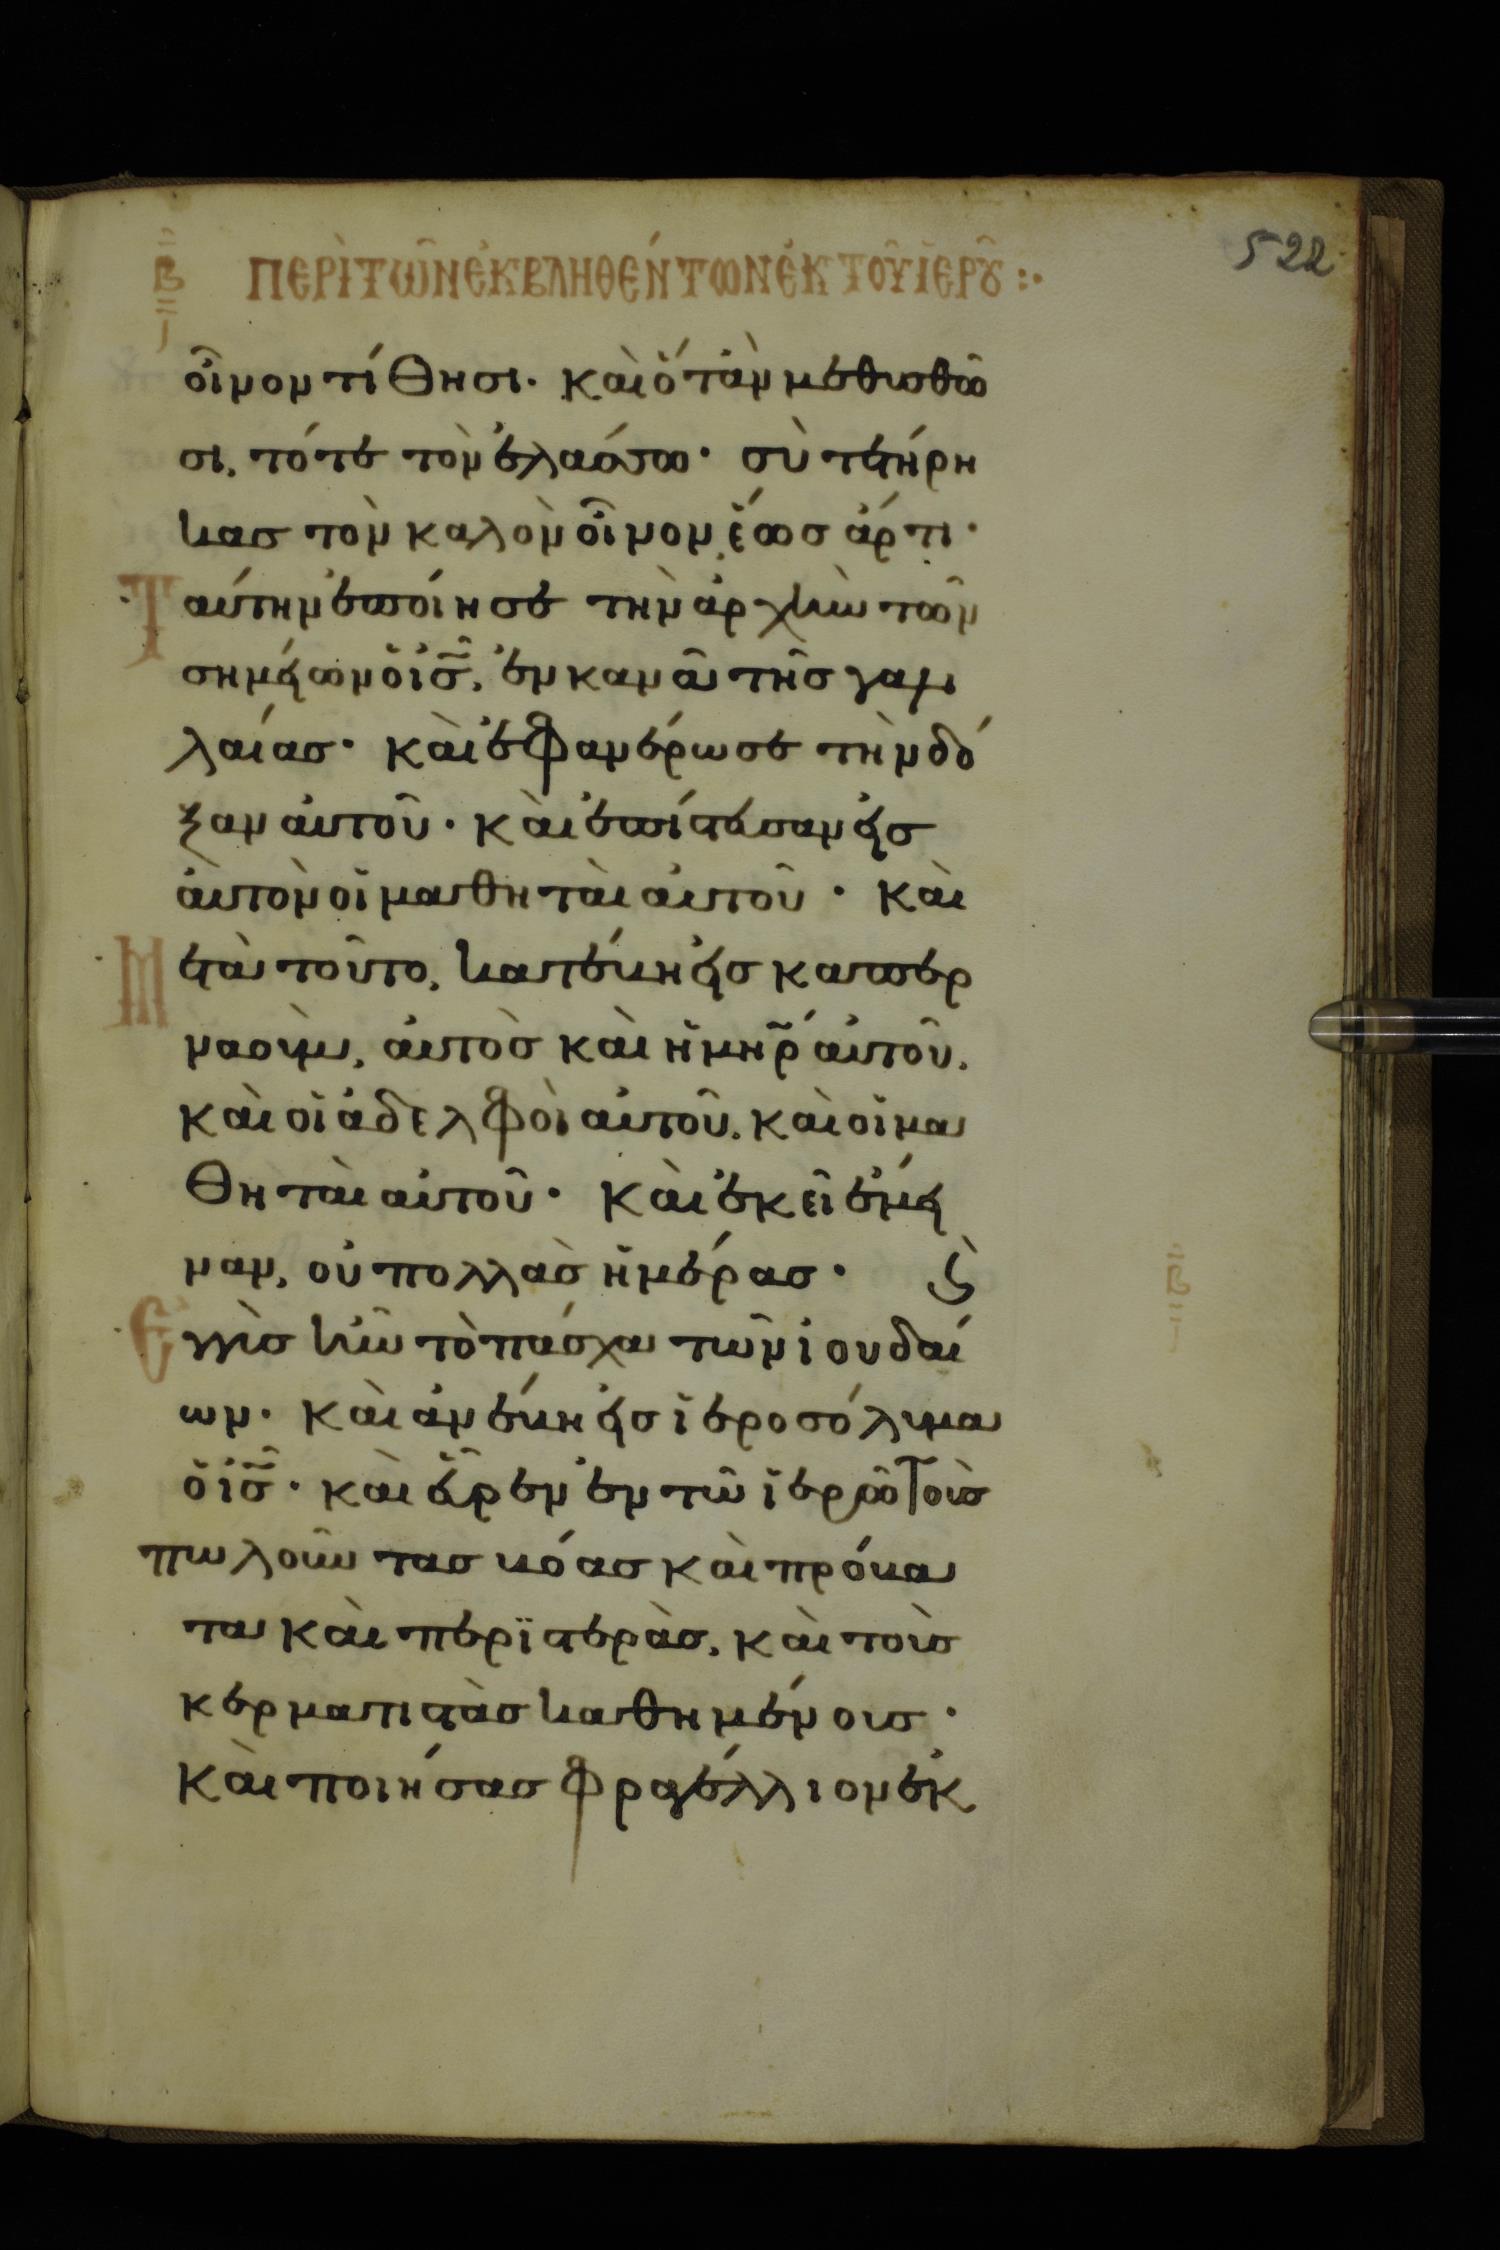 522
Β ΠΕΡῚ ΤΩ͂Ν ἘΚΒΛΗΘΈΝΤΩΝ ἘΚ ΤΟΥ͂ ἹΕΡΟΥ͂ :·
οἶνον τίθησι· καὶ ὅταν μεθυσθῶ
σι, τότε τὸν ἐλάσσω· σὺ τετήρη
κας τὸν καλὸν οἶνον, ἕως ἄρτι·
Ταύτην ἐποίησε τὴν ἀρχὴν τῶν
σημείων ὁ ἰς̅, ἐν κανᾶ τῆς γαλι
λαίας· καὶ ἐφανέρωσε τὴν δό
ξαν αὐτοῦ· καὶ ἐπίστευσαν εἰς
αὐτὸν οἱ μαθηταὶ αὐτοῦ· καὶ
Μετὰ τοῦτο, κατέβη εἰς καπερ
ναούμ, αὐτὸς καὶ ἡ μη̅ρ αὐτοῦ,
καὶ οἱ ἀδελφοὶ αὐτοῦ, καὶ οἱ μα
θηταὶ αὐτοῦ· καὶ ἐκεῖ ἔμει
ναν, οὐ πολλὰς ἡμέρας· ς
Ἐγγὺς ἦν τὸ πάσχα τῶν ἰουδαί
ων· καὶ ἀνέβη εἰς ἱεροσόλυμα
ὁ ἰς̅· καὶ εὗρεν ἐν τῶ ἱερῶ Τοὺς
πωλοῦντας βόας καὶ πρόβα
τα καὶ περϊστερὰς, καὶ τοὺς
κερματιστὰς καθημένους·
καὶ ποιήσας φραγέλλιον ἐκ
Β